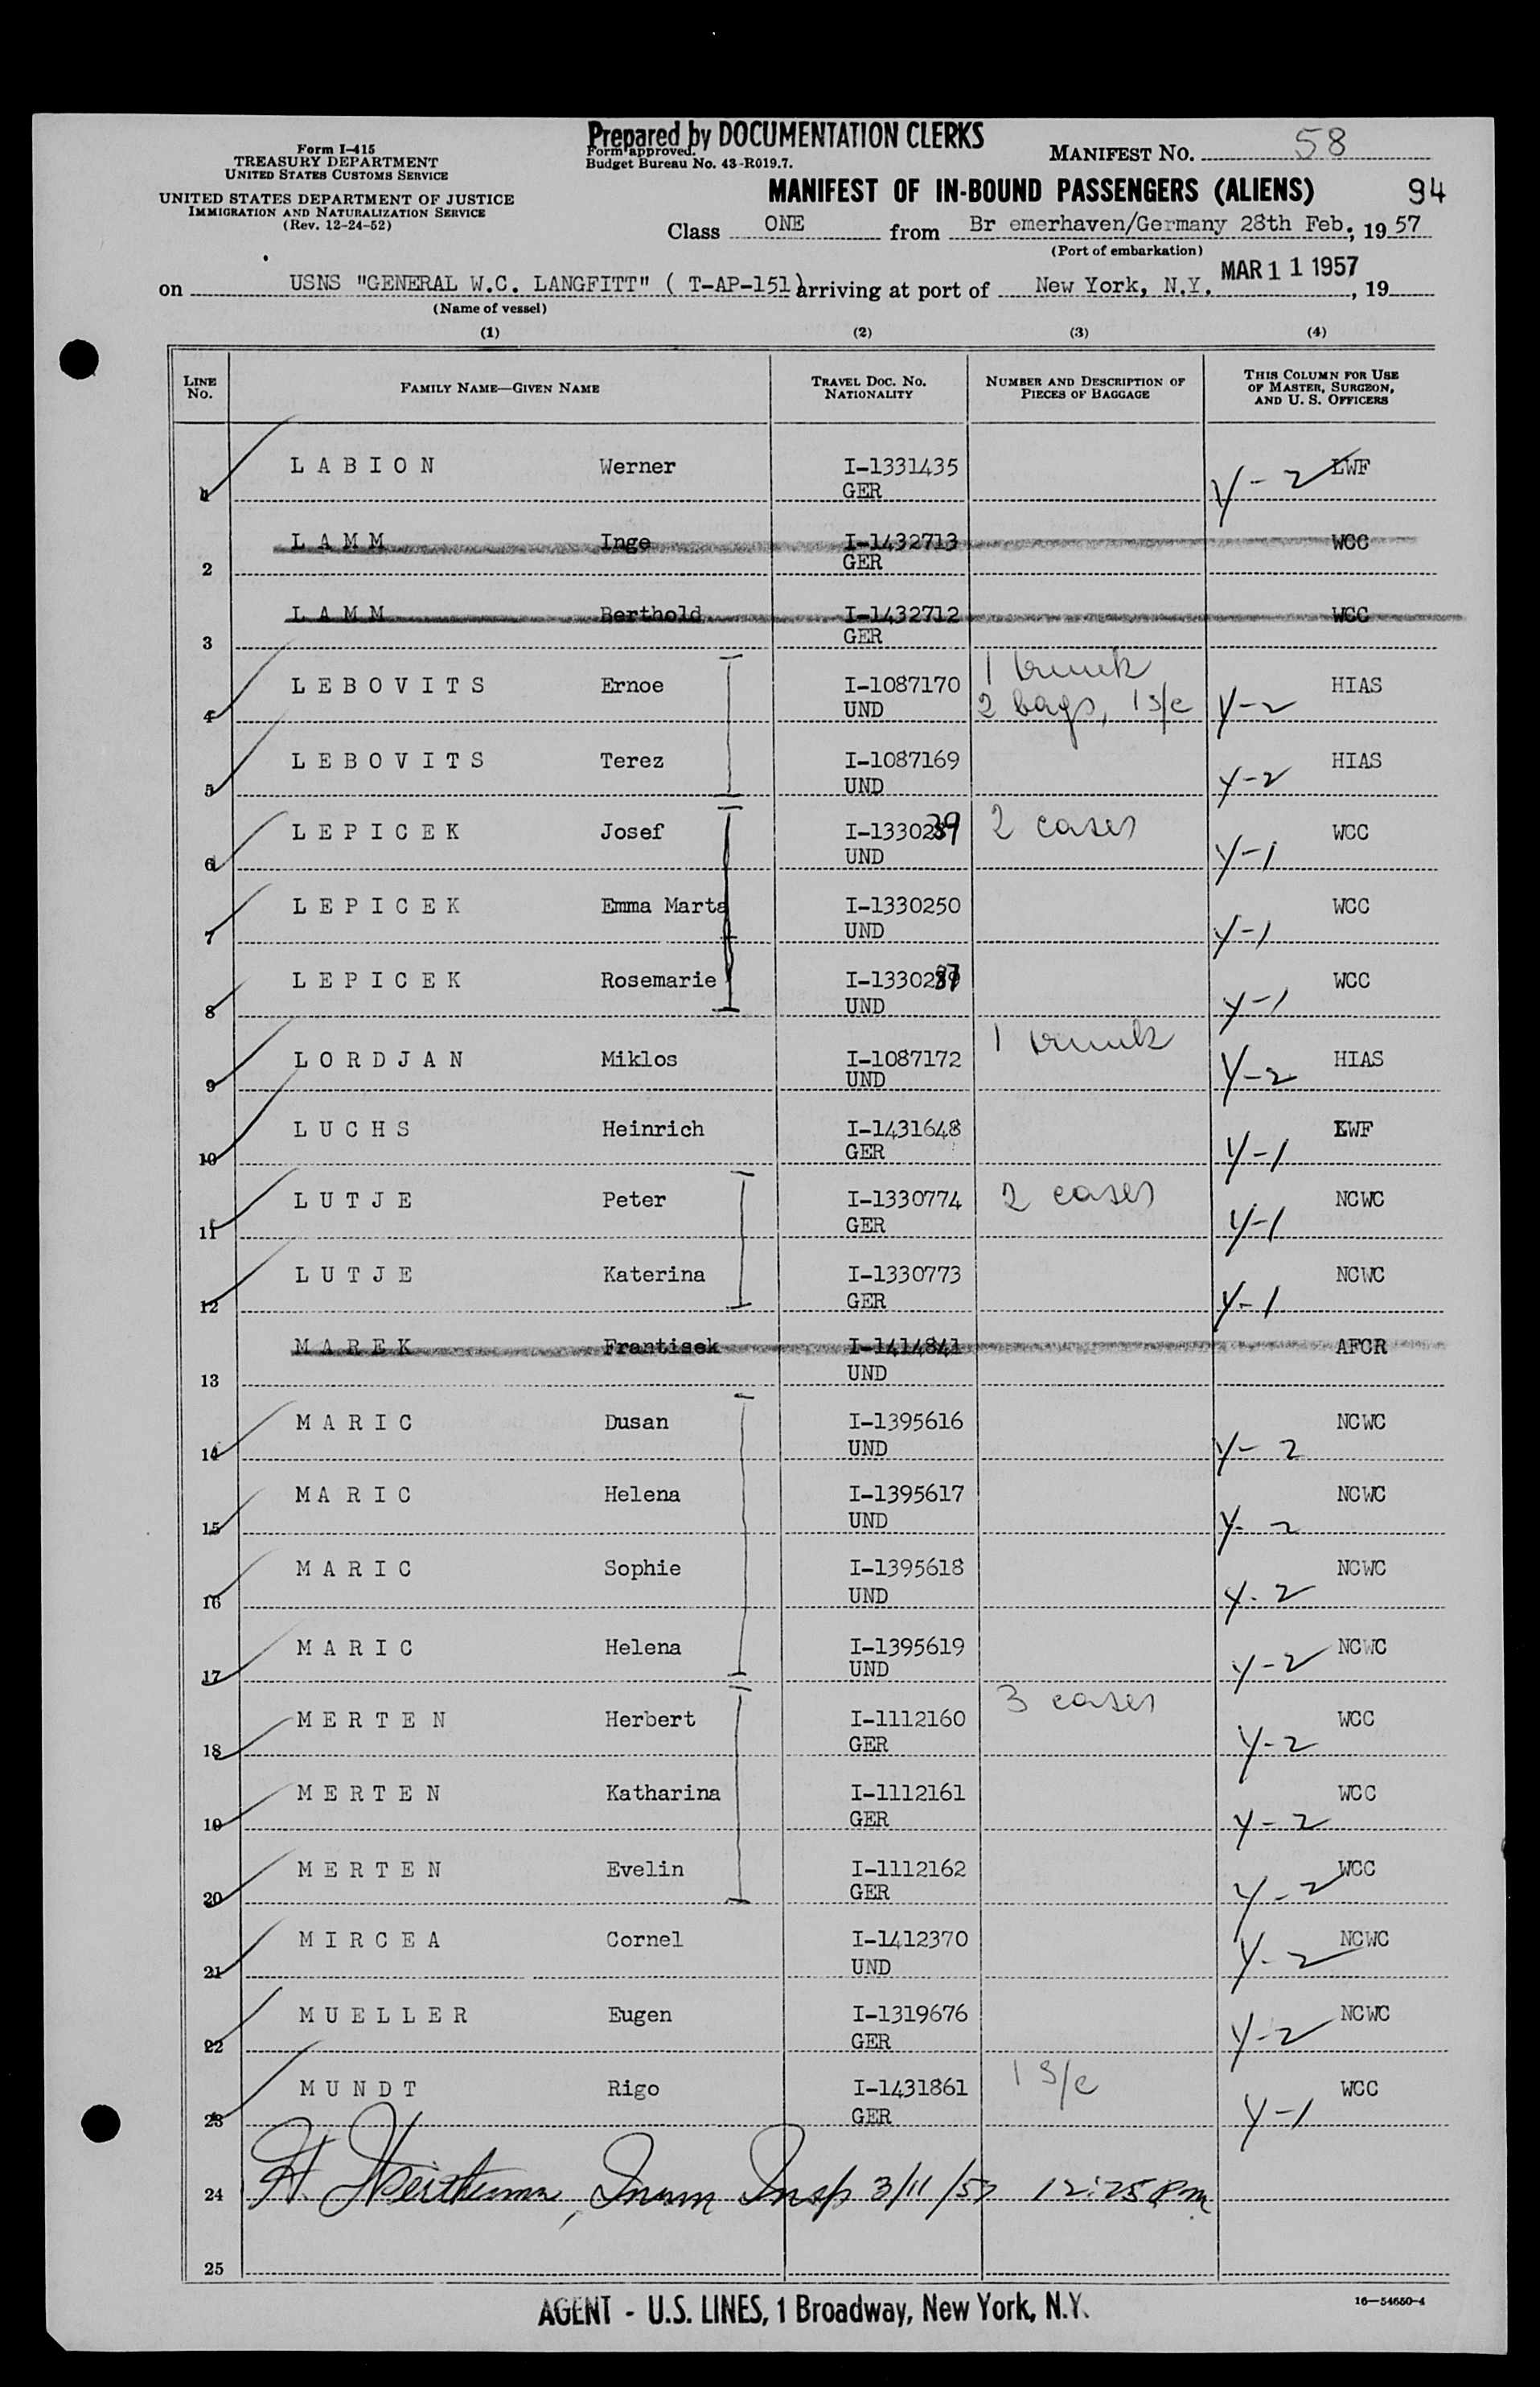 Prepared by DOCUMENTATION CLERKS
Form I-415
TREASURY DEPARTMENT
UNITED STATES CUSTOMS SERVICE
Form approved.
Budget Bureau No. 43-R019.7.
MANIFEST NO. 58
UNITED STATES DEPARTMENT OF JUSTICE
IMMIGRATION AND NATURALIZATION SERVICE
(Rev. 12-24-52)
MANIFEST OF IN-BOUND PASSENGERS (ALIENS) 94
Class ONE from Br emerhaven/Germany 28th Feb., 1957
(Port of embarkation)
on USNS "GENERAL W.C. LANGFITT" ( T-AP-151) arriving at port of New York, N.Y. MAR 11 1957, 19
(Name of vessel)
(1) (2) (3) (4)
LINE NO. FAMILY NAME—GIVEN NAME TRAVEL DOC. NO. NATIONALITY NUMBER AND DESCRIPTION OF PIECES OF BAGGAGE THIS COLUMN FOR USE OF MASTER, SURGEON, AND U. S. OFFICERS
1 L A B I O N Werner I-1331435 GER Y-2 LWF
2 L A M M Inge I-1432713 GER WCC
3 L A M M Berthold I-1432712 GER WCC
4 L E B O V I T S Ernoe I-1087170 UND 1 trunk 2 bags, 1 s/c Y-2 HIAS
5 L E B O V I T S Terez I-1087169 UND Y-2 HIAS
6 L E P I C E K Josef I-1330239 UND 2 cases Y-1 WCC
7 L E P I C E K Emma Marta I-1330250 UND Y-1 WCC
8 L E P I C E K Rosemarie I-1330237 UND Y-1 WCC
9 L O R D J A N Miklos I-1087172 UND 1 trunk Y-2 HIAS
10 L U C H S Heinrich I-1431648 GER Y-1 LWF
11 L U T J E Peter I-1330774 GER 2 cases Y-1 NCWC
12 L U T J E Katerina I-1330773 GER Y-1 NCWC
13 M A R E K Frantisek I-1414841 UND AFCR
14 M A R I C Dusan I-1395616 UND Y-2 NCWC
15 M A R I C Helena I-1395617 UND Y-2 NCWC
16 M A R I C Sophie I-1395618 UND Y-2 NCWC
17 M A R I C Helena I-1395619 UND Y-2 NCWC
18 M E R T E N Herbert I-1112160 GER 3 cases Y-2 WCC
19 M E R T E N Katharina I-1112161 GER Y-2 WCC
20 M E R T E N Evelin I-1112162 GER Y-2 WCC
21 M I R C E A Cornel I-1412370 UND Y-2 NCWC
22 M U E L L E R Eugen I-1319676 GER Y-2 NCWC
23 M U N D T Rigo I-1431861 GER 1 s/c Y-1 WCC
24 H. Imm Insp 3/11/57 12:25 PM
25
AGENT - U.S. LINES, 1 Broadway, New York, N.Y.
16—54650-4